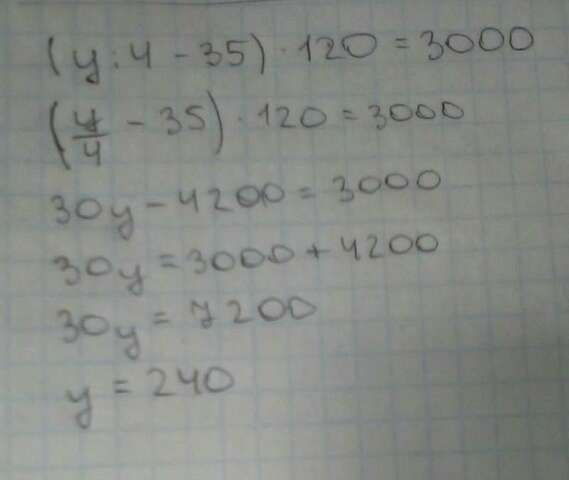 (y : 4 - 35) · 120 = 3000
(y/4 - 35) · 120 = 3000
30y - 4200 = 3000
30y = 3000 + 4200
30y = 7200
y = 240